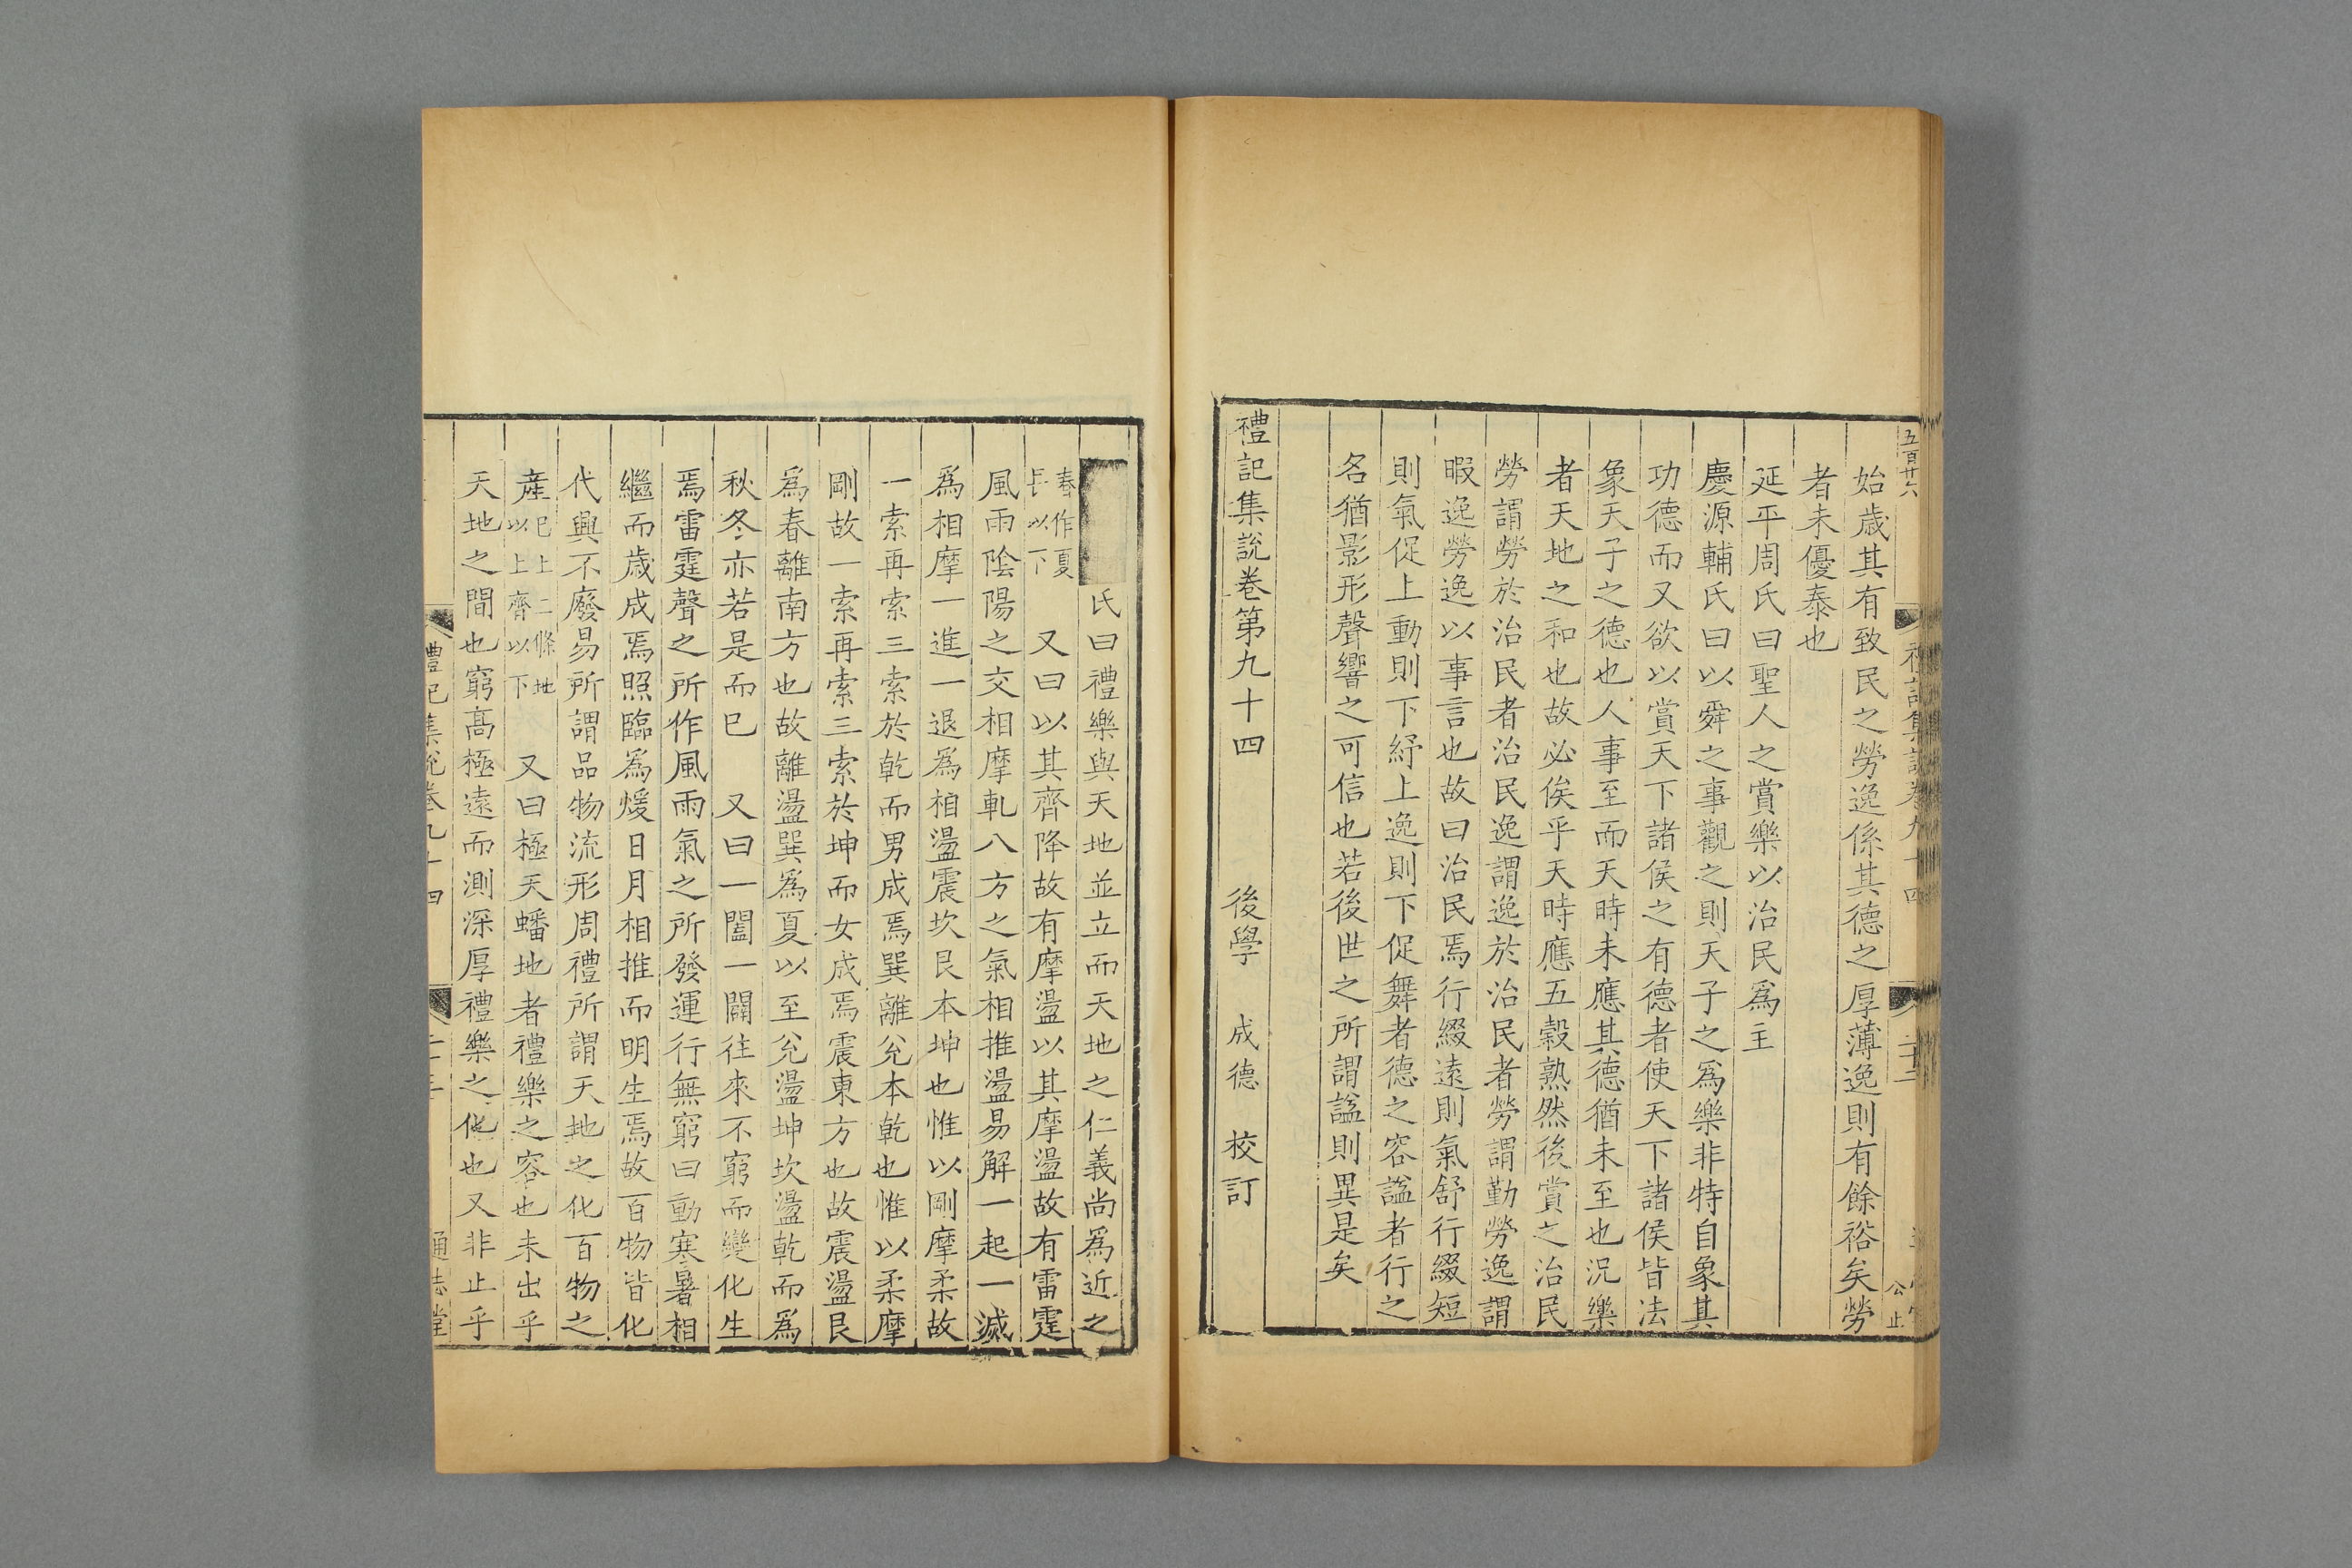 五百廿六
始歳其有致民之勞逸係其德之厚薄逸則有餘裕矣勞
者未優泰也
延平周氏曰聖人之賞樂以治民爲主
慶源輔氏曰以舜之事觀之則天子之爲樂非特自象其
功德而又欲以賞天下諸侯之有德者使天下諸侯皆法
象天子之德也人事至而天時未應其德猶未至也況樂
者天地之和也故必俟乎天時應五穀熟然後賞之治民
勞謂勞於治民者治民逸謂逸於治民者勞謂勤勞逸謂
暇逸勞逸以事言也故曰治民焉行綴遠則氣舒行綴短
則氣促上動則下紓上逸則下促舞者德之容謚者行之
名猶影形聲響之可信也若後世之所謂謚則異是矣
禮記集說卷第九十四 後學 成德 校訂
氏曰禮樂與天地並立而天地之仁義尚爲近之
春作夏
長以下
又曰以其齊降故有摩盪以其摩盪故有雷霆
風雨陰陽之交相摩軋八方之氣相推盪易解一起一滅
爲相摩一進一退爲相盪震坎艮本坤也惟以剛摩柔故
一索再索三索於乾而男成焉巽離兊本乾也惟以柔摩
剛故一索再索三索於坤而女成焉震東方也故震盪艮
爲春離南方也故離盪巽爲夏以至兊盪坤坎盪乾而爲
秋冬亦若是而已 又曰一闔一闢往來不窮而變化生
焉雷霆聲之所作風雨氣之所發運行無窮曰動寒暑相
繼而歳成焉照臨爲煖日月相推而明生焉故百物皆化
代興不廢易所謂品物流形周禮所謂天地之化百物之
產
已上二條地
以上齊以下
又曰極天蟠地者禮樂之容也未出乎
天地之間也窮高極遠而測深厚禮樂之化也又非止乎
禮記集說卷九十四 通志堂